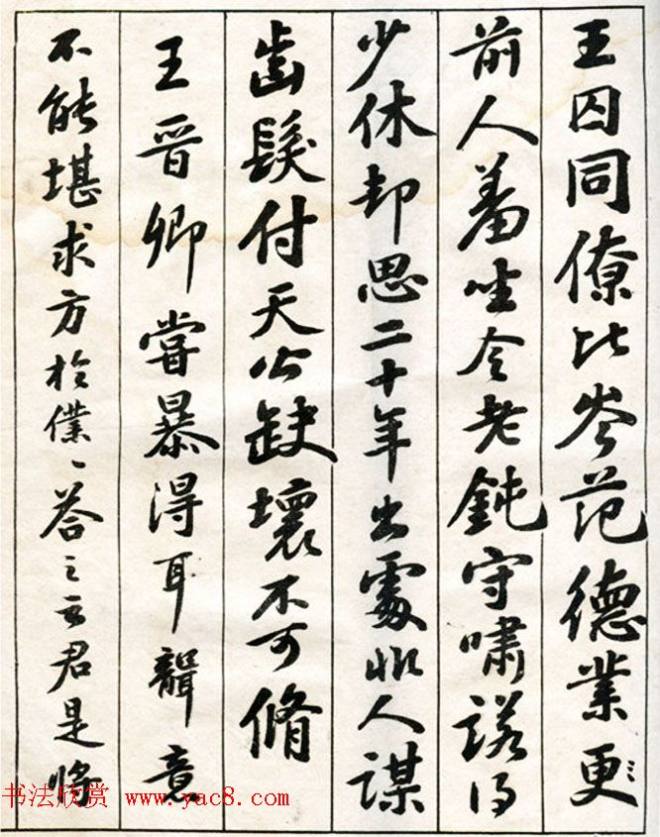 王囚同僚比岑范德業更
前人羞坐令老鈍守嘯諾得
少休却思二十年出處非人謀
齒髮付天公缺壞不可脩
王晋卿嘗暴得耳聾意
不能堪求方於僕〻答之云君是將
书法欣赏 www.yac8.com